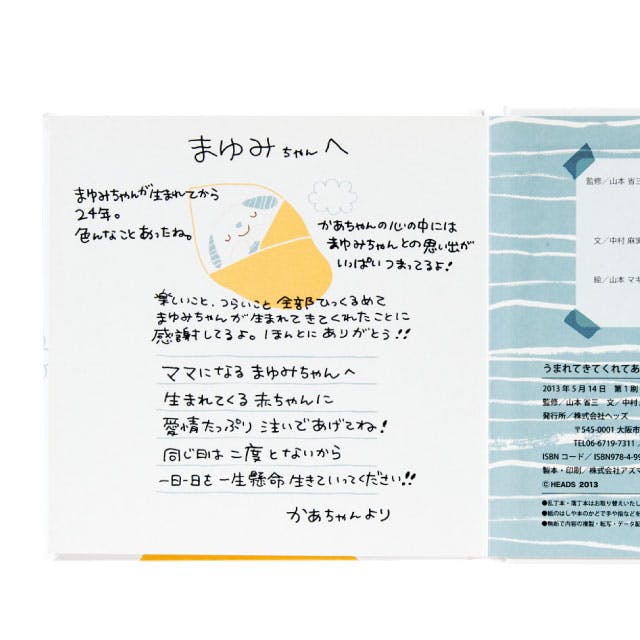 まゆみちゃんへ
まゆみちゃんが生まれてから
24年。
色んなことあったね。
かあちゃんの心の中には
まゆみちゃんとの思い出が
いっぱいつまってるよ!
楽しいこと、つらいこと 全部ひっくるめて
まゆみちゃんが生まれてきてくれたことに
感謝してるよ。ほんとにありがとう!!
ママになる まゆみちゃんへ
生まれてくる 赤ちゃんに
愛情たっぷり 注いであげてね!
同じ日は 二度とないから
一日一日を 一生懸命 生きていってください!!
かあちゃんより
監修/山本 省三
文/中村 麻実
絵/山本 マキ
うまれてきてくれてあ
2013年5月14日 第1刷
監修/山本 省三 文/中村
発行所/株式会社ヘッズ
〒545-0001 大阪市
TEL06-6719-7311
ISBNコード/ISBN978-4-99
製本・印刷/株式会社アズマ
©HEADS 2013
●乱丁本・落丁本はお取り替えいたし
●紙のはしや本のかどで手や指などを
●無断で内容の複製・転写・データ配